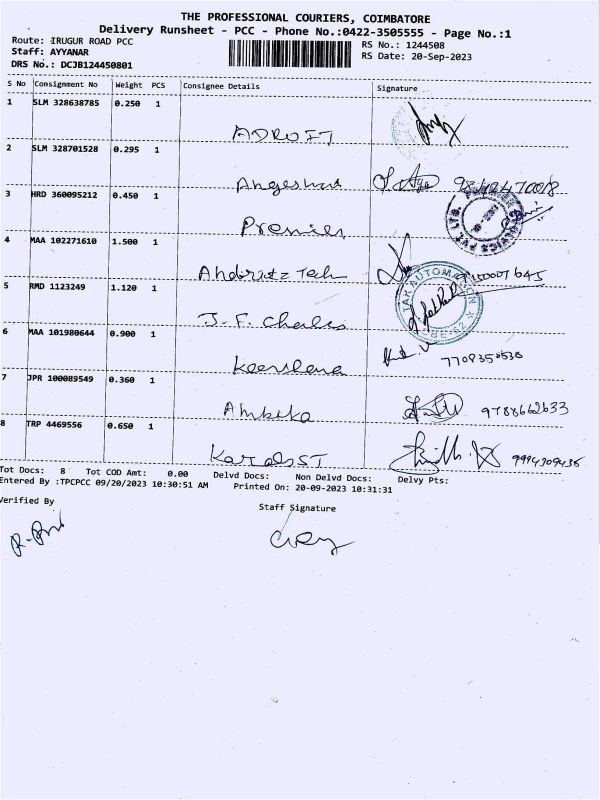 THE PROFESSIONAL COURIERS, COIMBATORE
Delivery Runsheet - PCC - Phone No.:0422-3505555 - Page No.:1
Route: IRUGUR ROAD PCC
RS No.: 1244508
Staff: AYYANAR
RS Date: 20-Sep-2023
DRS No.: DCJB124450801
S No Consignment No Weight PCS Consignee Details Signature
1 SLM 328638785 0.250 1
ADROIT
2 SLM 328701528 0.295 1
3 HRD 360095212 0.450 1
Premier
4 MAA 102271610 1.500 1
Tech
5 RMD 1123249 1.120 1
AUTOMATION
J.F. Charles
6 MAA 101980644 0.900 1
7708350538
7 JPR 100089549 0.360 1
Ambika 9788662633
8 TRP 4469556 0.650 1
9994909436
Tot Docs: 8 Tot COD Amt: 0.00 Delvd Docs: Non Delvd Docs: Delvy Pts:
Entered By :TPCPCC 09/20/2023 10:30:51 AM Printed On: 20-09-2023 10:31:31
Verified By
Staff Signature